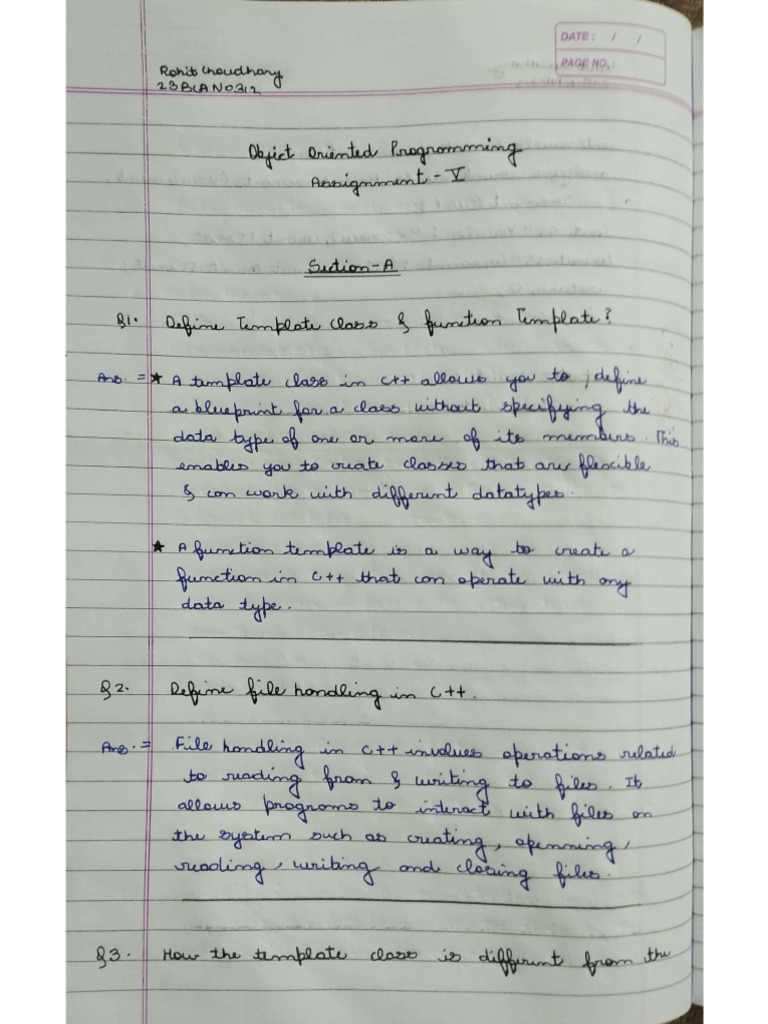 DATE: / /
PAGE NO.:
Rohit Choudhary
23BCAN0312
Object Oriented Programming
Assignment - V
Section-A
Q1. Define Template class & function Template?
Ans. = ★ A template class in C++ allows you to define
a blueprint for a class without specifying the
data type of one or more of its members. This
enables you to create classes that are flexible
& can work with different datatypes.
★ A function template is a way to create a
function in C++ that can operate with any
data type.
Q2. Define file handling in C++.
Ans. = File handling in C++ involves operations related
to reading from & writing to files. It
allows programs to interact with files on
the system such as creating, openning,
reading, writing and closing files.
Q3. How the template class is different from the